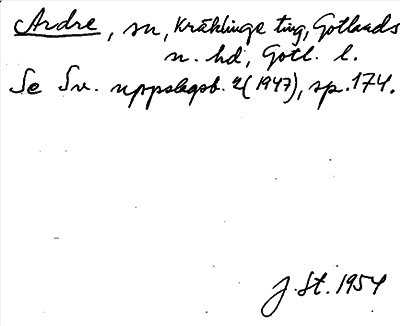 Ardre, sn, Kräklinge ting, Gotlands
n. hd, Gotl. l.
Se Sv. uppslagsb. 2 (1947), sp. 174.
J. St. 1954